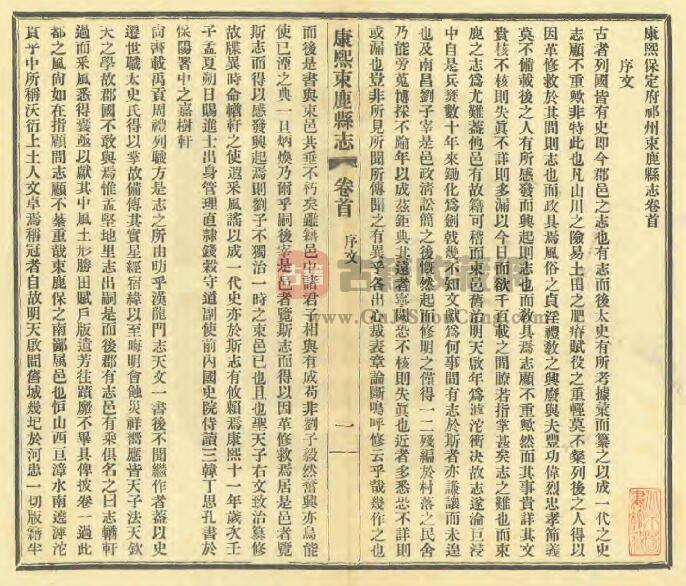 康熙保定府祁州束鹿縣志卷首
序文
古者列國皆有史卽今郡邑之志也有志而後太史有所考據彙而纂之以成一代之史
志顧不重歟非特此也凡山川之險易土田之肥瘠賦役之重輕莫不粲列後之人得以
因革修救於其間則志也而政具焉風俗之貞淫禮敎之興廢與夫豐功偉烈忠孝節義
莫不備載後之人有所感發而興起則志也而敎具焉志顧不重歟然而其事貴詳其文
貴核不核則失眞不詳則多漏以今日而欲千百載之間瞭若指掌甚矣志之難也而束
鹿之志爲尤難蓋他邑有故籍可稽而束邑舊治明天啟年爲滹沱衝決故志遂淪巨浸
中自是兵燹數十年來鋤化爲劍戟幾不知文獻爲何事間有志於斯者亦謙讓而未遑
也及南昌劉子宰是邑政淸訟簡之後慨然起而修明之僅得一二殘編於村落之民舍
乃能旁蒐博採不踰年以成茲鉅典其遠者寧闕恐不核則失眞也近者多悉恐不詳則
或漏也豈非所見所聞所傳聞之有異乎各出心裁表章論斷嗚呼修云乎哉幾作之也
康熙束鹿縣志 卷首 序文 一
而後是書與束邑共垂不朽矣雖籍邑中諸君子相與有成苟非劉子毅然奮興亦烏能
使已湮之典一旦炳煥乃爾乎嗣後宰是邑者覽斯志而得以因革修救焉居是邑者覽
斯志而得以感發興起焉則劉子不獨治一時之束邑已也且也聖天子右文致治纂修
故牒異時命輶軒之使遐采風謠以成一代史亦於斯志有攸賴焉康熙十一年歲次壬
子孟夏朔日賜進士出身管理直隷錢穀守道副使前內國史院侍讀三韓丁思孔書於
保陽署中之嘉樹軒
尙書載禹貢周禮列職方是志之所由昉乎漢龍門志天文一書後不聞繼作者蓋以史
遷世職太史氏得以掌故備傳其實星經宿緯以至晦明會蝕災祥禨應皆天子法天欽
天之學故郡國不敢與焉惟孟堅地里志出嗣是而後郡有志邑有乘俱名之曰志輶軒
過而采風悉得囊亟以獻其中風土形勝田賦戶版遺芳往蹟靡不畢具俾披卷一過此
都之風尙如在指顧間志顧不綦重哉束鹿保之南鄙屬邑也恒山西亘漳水南遶滹沱
貫乎中所稱沃衍上土人文卓焉稱冠者自故明天啟間舊城幾圮於河患一切版籍半